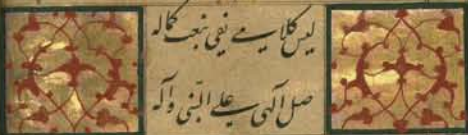 لیس کلامی یفی بنعت کماله
صل الهی علی النبی وآله